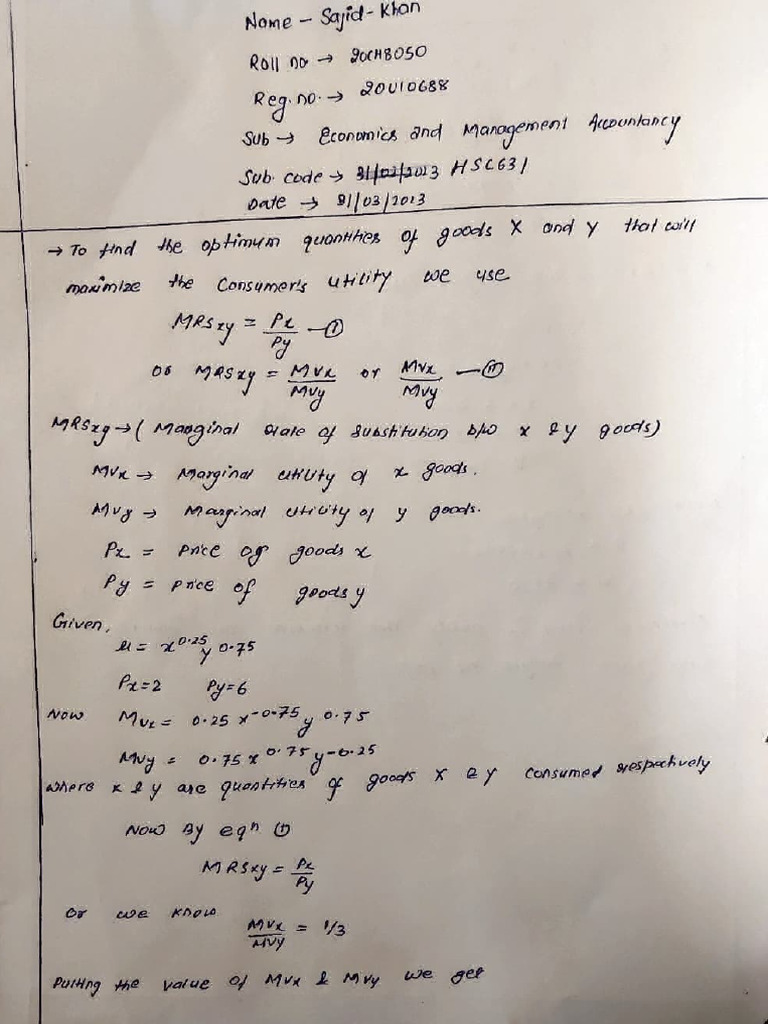 Name - Sajid-Khan
Roll no → 20CH8050
Reg. no. → 20U10688
Sub → Economics and Management Accountancy
Sub. code → 31/03/2023 HSC631
Date → 31/03/2023
→ To find the optimum quantities of goods X and y that will
maximize the Consumer's utility we use
MRSxy = Px/Py —①
or MRSxy = MUx/MUy or MUx/MUy —②
MRSxy → ( Marginal rate of substitution b/w x & y goods)
MUx → Marginal utility of x goods.
MUy → Marginal utility of y goods.
Px = price of goods x
Py = price of goods y
Given,
u = x^0.25 y^0.75
Px=2 Py=6
Now MUx = 0.25 x^-0.75 y^0.75
MUy = 0.75 x^0.75 y^-0.25
where x & y are quantities of goods X & y consumed respectively
Now By eqn ①
MRSxy = Px/Py
Or we know
MUx/MUy = 1/3
Putting the value of MUx & MUy we get